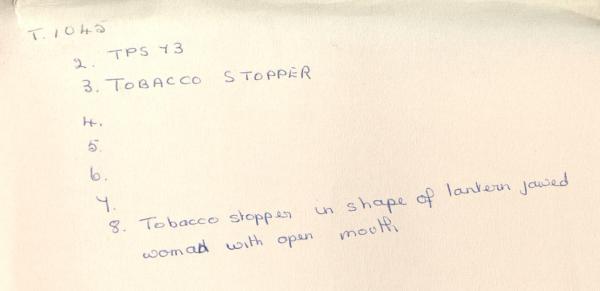 T.1045
2. TPS 73
3. TOBACCO STOPPER
4.
5.
6.
7.
8. Tobacco stopper in shape of lantern jawed
woman with open mouth